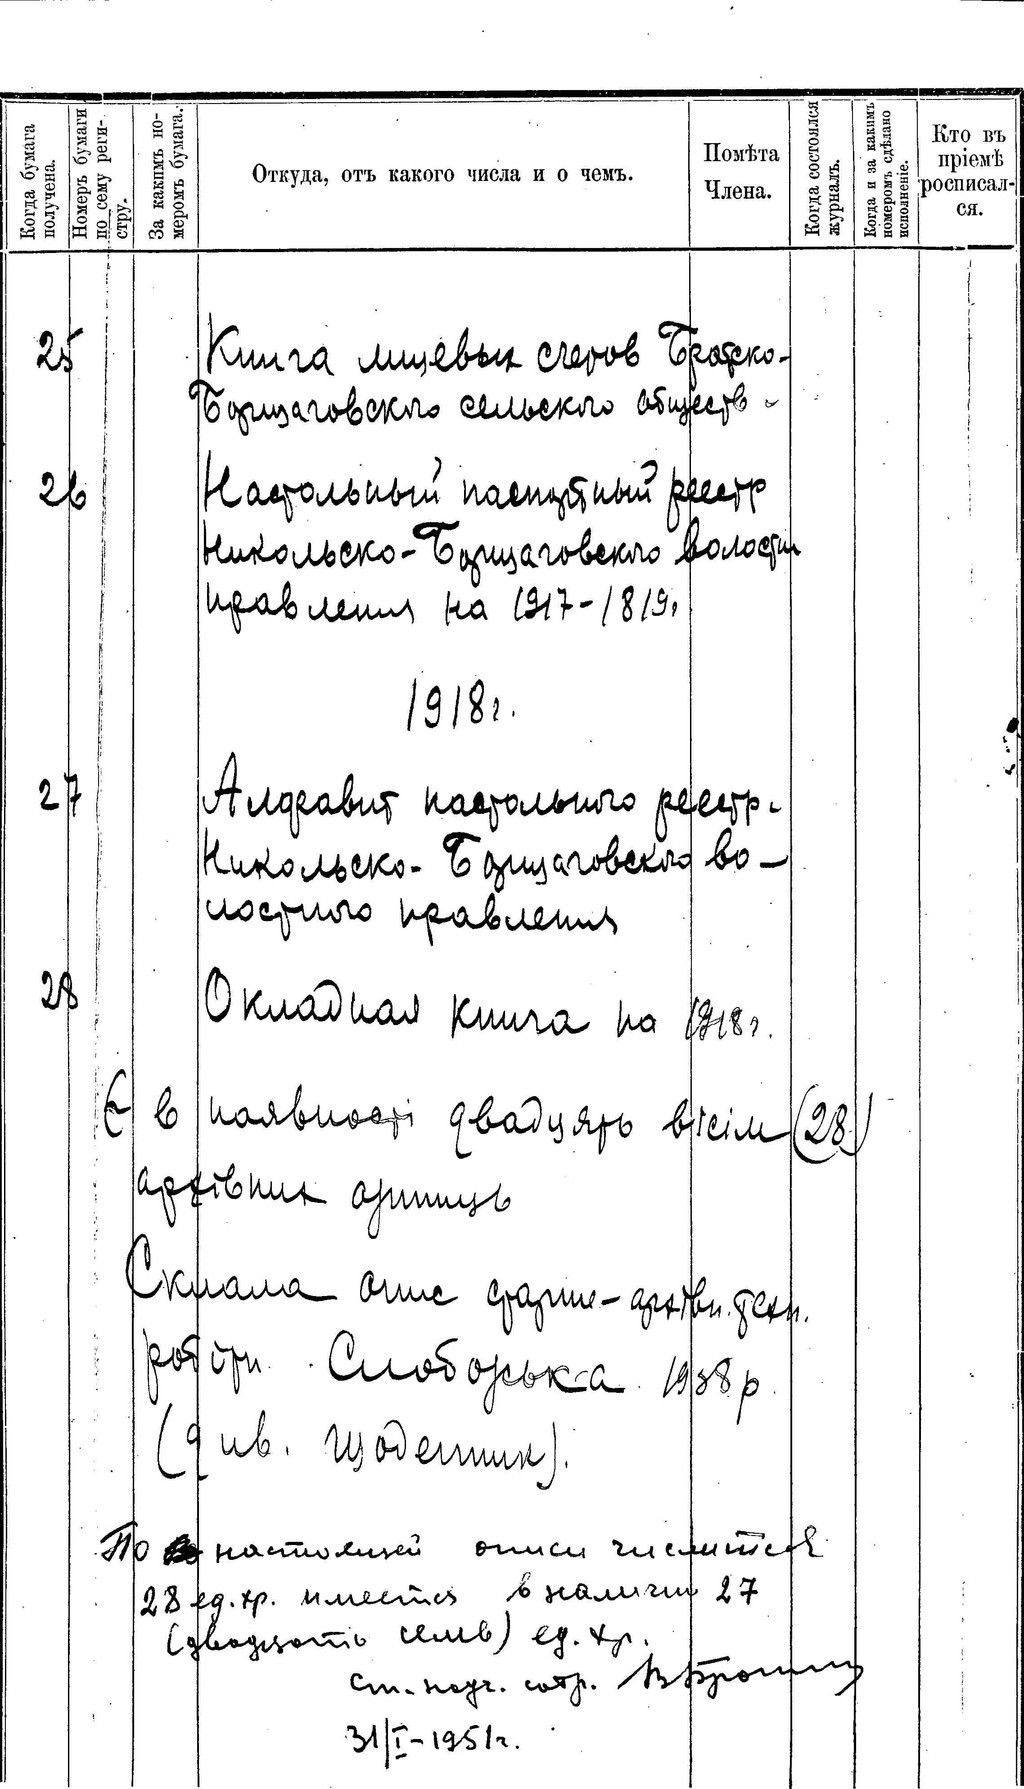 Когда бумага получена.
Номеръ бумаги по сему реги-стру.
За какимъ но-меромъ бумага.
Откуда, отъ какого числа и о чемъ.
Помѣта Члена.
Когда состоялся журналъ.
Когда и за какимъ номеромъ сдѣлано исполненіе.
Кто въ пріемѣ росписал-ся.
25 Книга лицевых счетов Братско-
Борщаговского сельского обществ
26 Настольный паспортный реестр
Никольско-Борщаговского волостн
правления на 1917-1819г
1918г.
27 Алфавит настольного реестр.
Никольско-Борщаговского во-
лостного правления
28 Окладная книга на 1918г.
Є в наявності двадцять вісім (28)
архівних одиниць
Склала опис старше-архівн. техн.
Слободська 1938р
(див. щоденник).
По настоящей описи числится
28 ед. хр. имеется в наличии 27
(двадцать семь) ед. хр.
Ст. науч. сотр.
31/I-1951г.